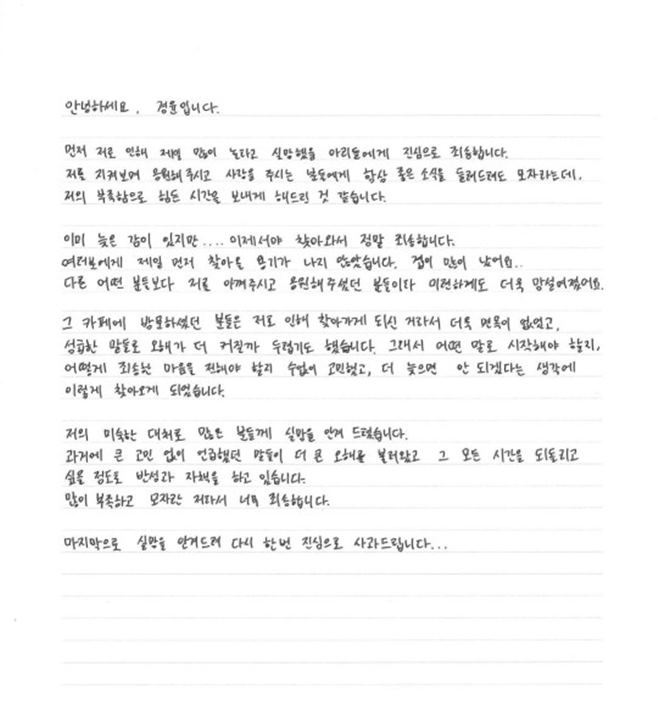 안녕하세요. 경윤입니다.
먼저 저로 인해 제일 많이 놀라고 실망했을 아리들에게 진심으로 죄송합니다.
저를 지켜보며 응원해주시고 사랑을 주시는 남들에게 항상 좋은 소식을 들려드려도 모자라는데,
저의 부족함으로 힘든 시간을 보내게 해드린 것 같습니다.
이미 늦은 감이 있지만.... 이제서야 찾아와서 정말 죄송합니다.
여러분에게 제일 먼저 찾아올 용기가 나지 않았습니다. 겁이 많이 났어요..
다른 어떤 분들보다 저를 아껴주시고 응원해주셨던 분들이라 미련하게도 더욱 망설여졌어요.
그 카페에 방문하셨던 분들은 저로 인해 찾아가게 되신 거라서 더욱 면목이 없었고,
섣급한 말들로 오해가 더 커질까 두렵기도 했습니다. 그래서 어떤 말로 시작해야 할지,
어떻게 죄송한 마음을 전해야 할지 수없이 고민했고, 더 늦으면 안 되겠다는 생각에
이렇게 찾아오게 되었습니다.
저의 미숙한 대처로 많은 분들께 실망을 안겨 드렸습니다.
과거에 큰 고민 없이 언급했던 말들이 더 큰 오해를 불러왔고 그 모든 시간을 되돌리고
싶을 정도로 반성과 자책을 하고 있습니다.
많이 부족하고 모자란 저라서 너무 죄송합니다.
마지막으로 실망을 안겨드려 다시 한번 진심으로 사과드립니다...